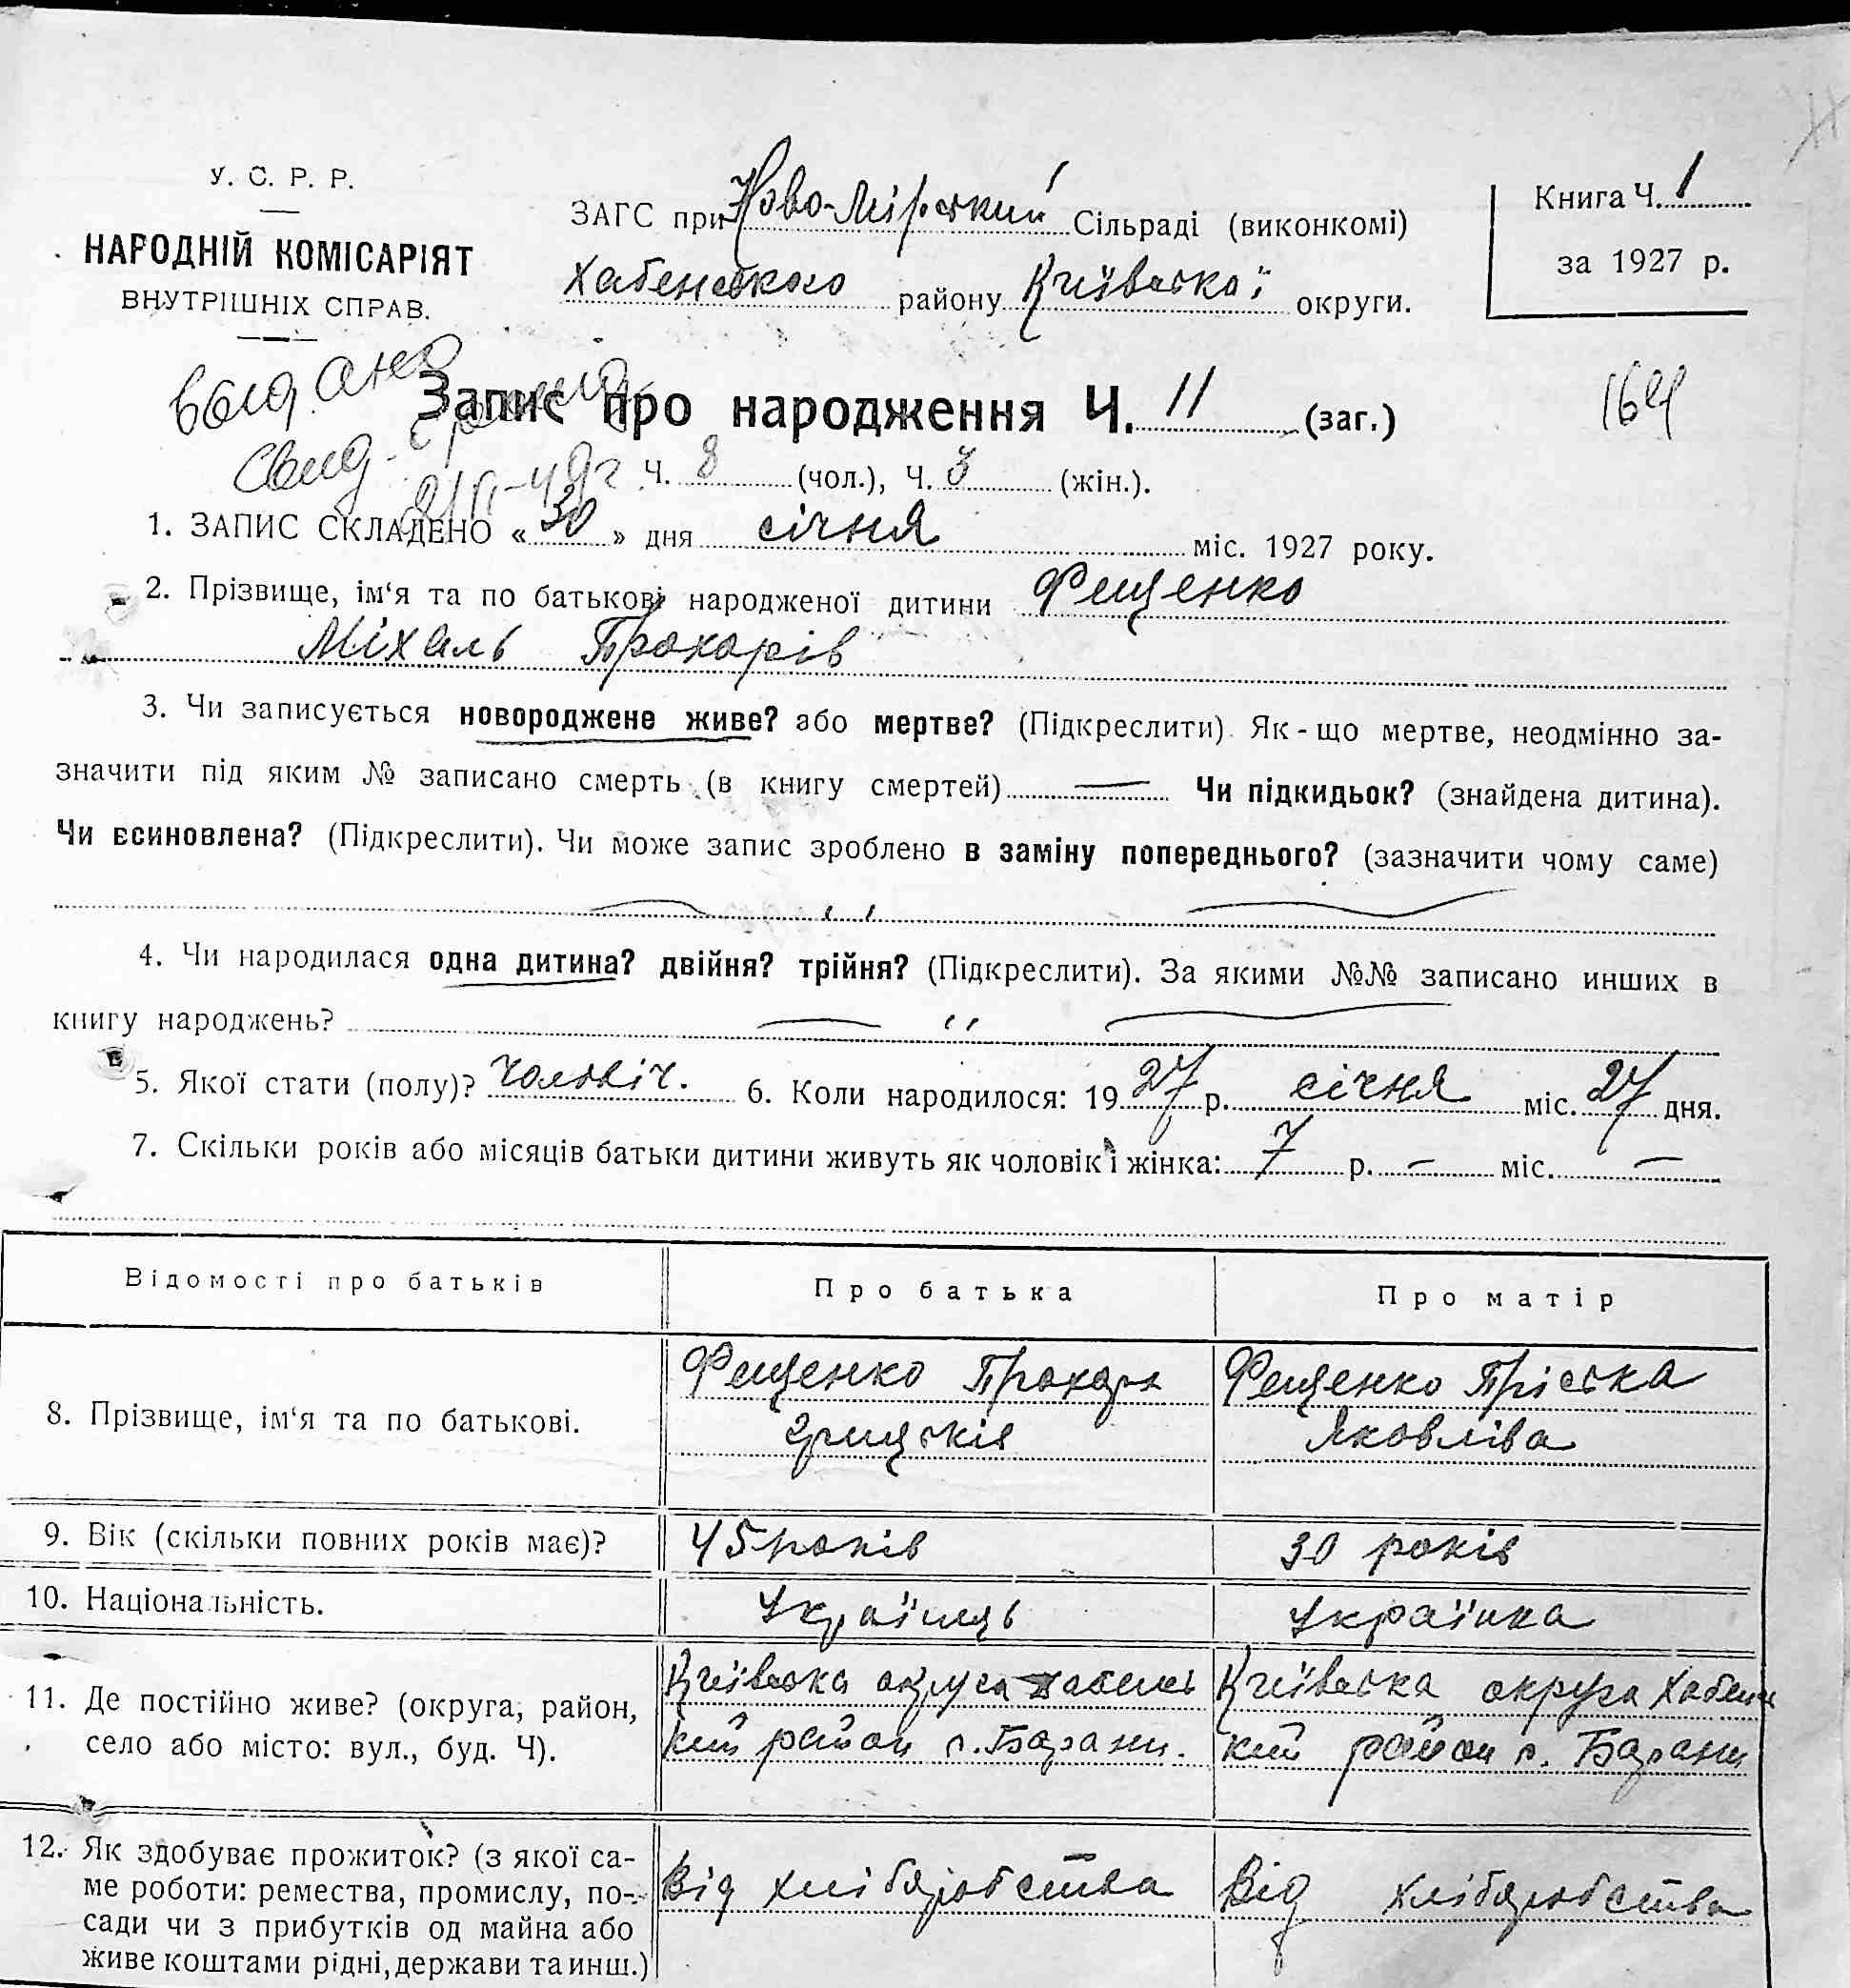 У. С. Р. Р.
НАРОДНІЙ КОМІСАРІЯТ
ВНУТРІШНІХ СПРАВ.
ЗАГС при Ново-Мірський Сільраді (виконкомі)
Хабенського району Київської округи.
Книга Ч. 1
за 1927 р.
Запис про народження Ч. 11 (заг.)
164
выдано
свид.
Ч. 8 (чол.), Ч. 3 (жін.).
1. ЗАПИС СКЛАДЕНО « 30 » дня січня міс. 1927 року.
2. Прізвище, ім‘я та по батькові народженої дитини Фещенко
Міхаль Прохорів
3. Чи записується новороджене живе? або мертве? (Підкреслити). Як-що мертве, неодмінно за-
значити під яким № записано смерть (в книгу смертей) — Чи підкидьок? (знайдена дитина).
Чи всиновлена? (Підкреслити). Чи може запис зроблено в заміну попереднього? (зазначити чому саме)
4. Чи народилася одна дитина? двійня? трійня? (Підкреслити). За якими №№ записано инших в
книгу народжень?
5. Якої стати (полу)? чоловіч. 6. Коли народилося: 1927 р. січня міс. 27 дня.
7. Скільки років або місяців батьки дитини живуть як чоловік і жінка: 7 р. — міс. —
Відомості про батьків Про батька Про матір
8. Прізвище, ім‘я та по батькові. Фещенко Прохор Фещенко Пріська
Грицьків Яковліва
9. Вік (скільки повних років має)? 45 років 30 років
10. Національність. Українець Українка
11. Де постійно живе? (округа, район, Київська округа Хабенсь Київська округа Хабенсь
село або місто: вул., буд. Ч). кий район с. Барани. кий район с. Барани
12. Як здобуває прожиток? (з якої са-
ме роботи: ремества, промислу, по- Від хліборобства Від хліборобства
сади чи з прибутків од майна або
живе коштами рідні, держави та инш.)